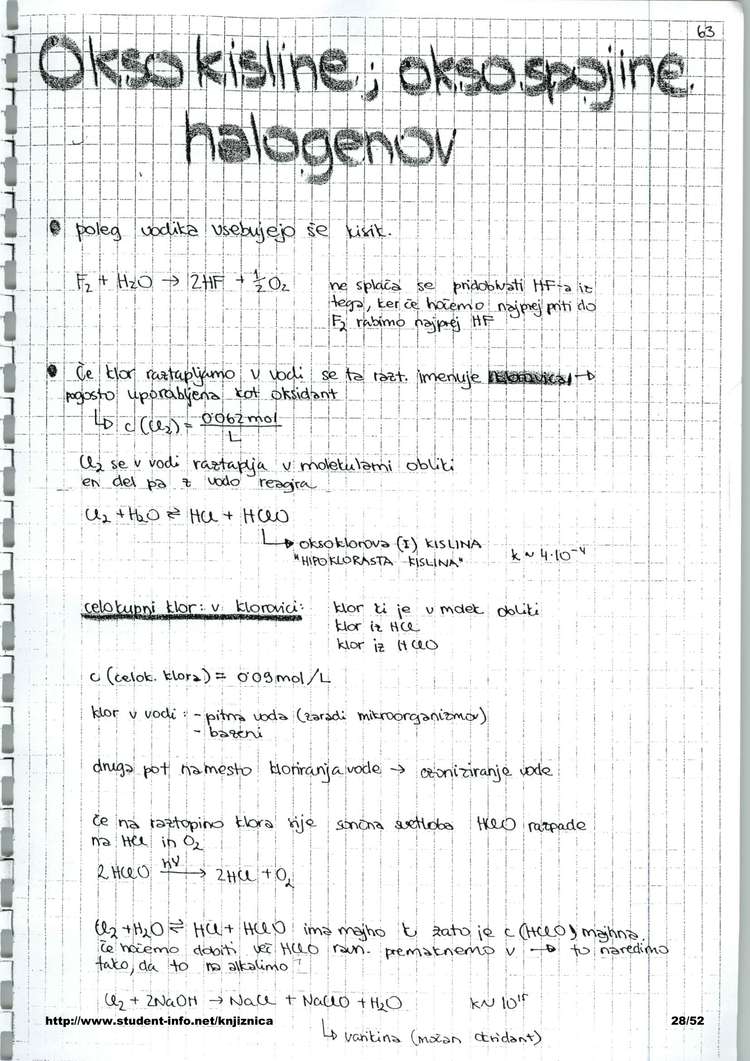 63
Okso kisline; okso spojine
halogenov
poleg vodika vsebujejo še kisik.
F₂ + H₂O → 2HF + ½O₂
ne splača se pridobivati HF-a iz
tega, ker če hočemo najprej priti do
F₂ rabimo najprej HF
Če klor raztapljamo v vodi se ta razt. imenuje klorovica →
pogosto uporabljena kot oksidant
↳ c(Cl₂) = 0'062 mol
L
Cl₂ se v vodi raztaplja v molekularni obliki
en del pa z vodo reagira
Cl₂ + H₂O ⇌ HCl + HClO
↳ oksoklorova (I) KISLINA
"HIPOKLORASTA KISLINA"
k ~ 4·10⁻⁴
celokupni klor: v klorovici:
klor ki je v molek obliki
klor iz HCl
klor iz HClO
c (celok. klora) = 0'09 mol/L
klor v vodi: - pitna voda (zaradi mikroorganizmov)
- bazeni
druga pot namesto kloriranja vode → ozoniziranje vode
če na raztopino klora sije sončna svetloba HClO razpade
na HCl in O₂
2HClO hν → 2HCl + O₂
Cl₂ + H₂O ⇌ HCl + HClO ima majho k zato je c(HClO) majhna.
če hočemo dobiti več HClO ravn. premaknemo v → to naredimo
tako, da to na alkalimo
Cl₂ + 2NaOH → NaCl + NaClO + H₂O
k ~ 10¹⁵
http://www.student-info.net/knjiznica
28/52
↳ varikina (močan oksidant)